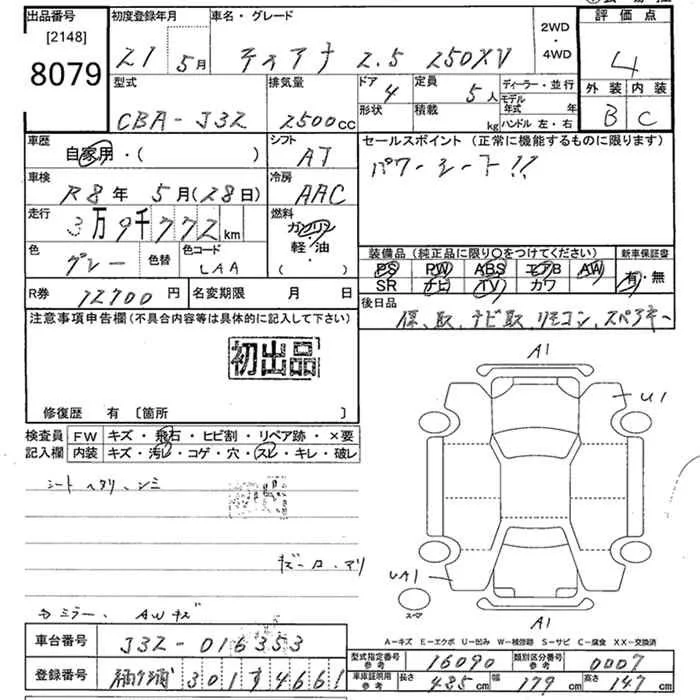 出品番号 初度登録年月 車名・グレード 2WD・4WD 評価点
[2148] 8079 21 5月 ティアナ 2.5 250XV 4
型式 排気量 ドア 4 定員 5人 ディーラー・並行 外装 内装
CBA-J32 2500cc 形状 積載 kg モデル年式 年 ハンドル 左・右 B C
車歴 自家用・( ) シフト AT セールスポイント (正常に機能するものに限ります)
車検 R8年 5月(28日) 冷房 AAC パワーシート!!
走行 3万9千772km 燃料 ガソリン・軽・油 ( )
色 グレー 色替 色コード LAA
装備品 (純正品に限り○をつけてください) 新車保証書
PS PW ABS エアB AW 有・無
SR ナビ TV カワ
R券 12700円 名変期限 月 日
後日品 保、取、ナビ取、リモコン、スペアキー
注意事項申告欄 (不具合内容等は具体的に記入して下さい)
初出品
修復歴 有 [箇所 ]
検査員記入欄 FW キズ・飛石・ヒビ割・リペア跡・×要
内装 キズ・汚レ・コゲ・穴・スレ・キレ・破レ
シート ヘタリ、シミ
ミラー、AWキズ
A1
U1
UA1
スペア
A1
A-キズ E-エクボ U-凹み W-補修跡 S-サビ C-腐食 XX-交換済
車台番号 J32-016353
型式指定番号 参考 16090 類別区分番号 参考 0007
登録番号 301す4661
車庫証明用 参考 長さ 485cm 幅 179cm 高さ 147cm